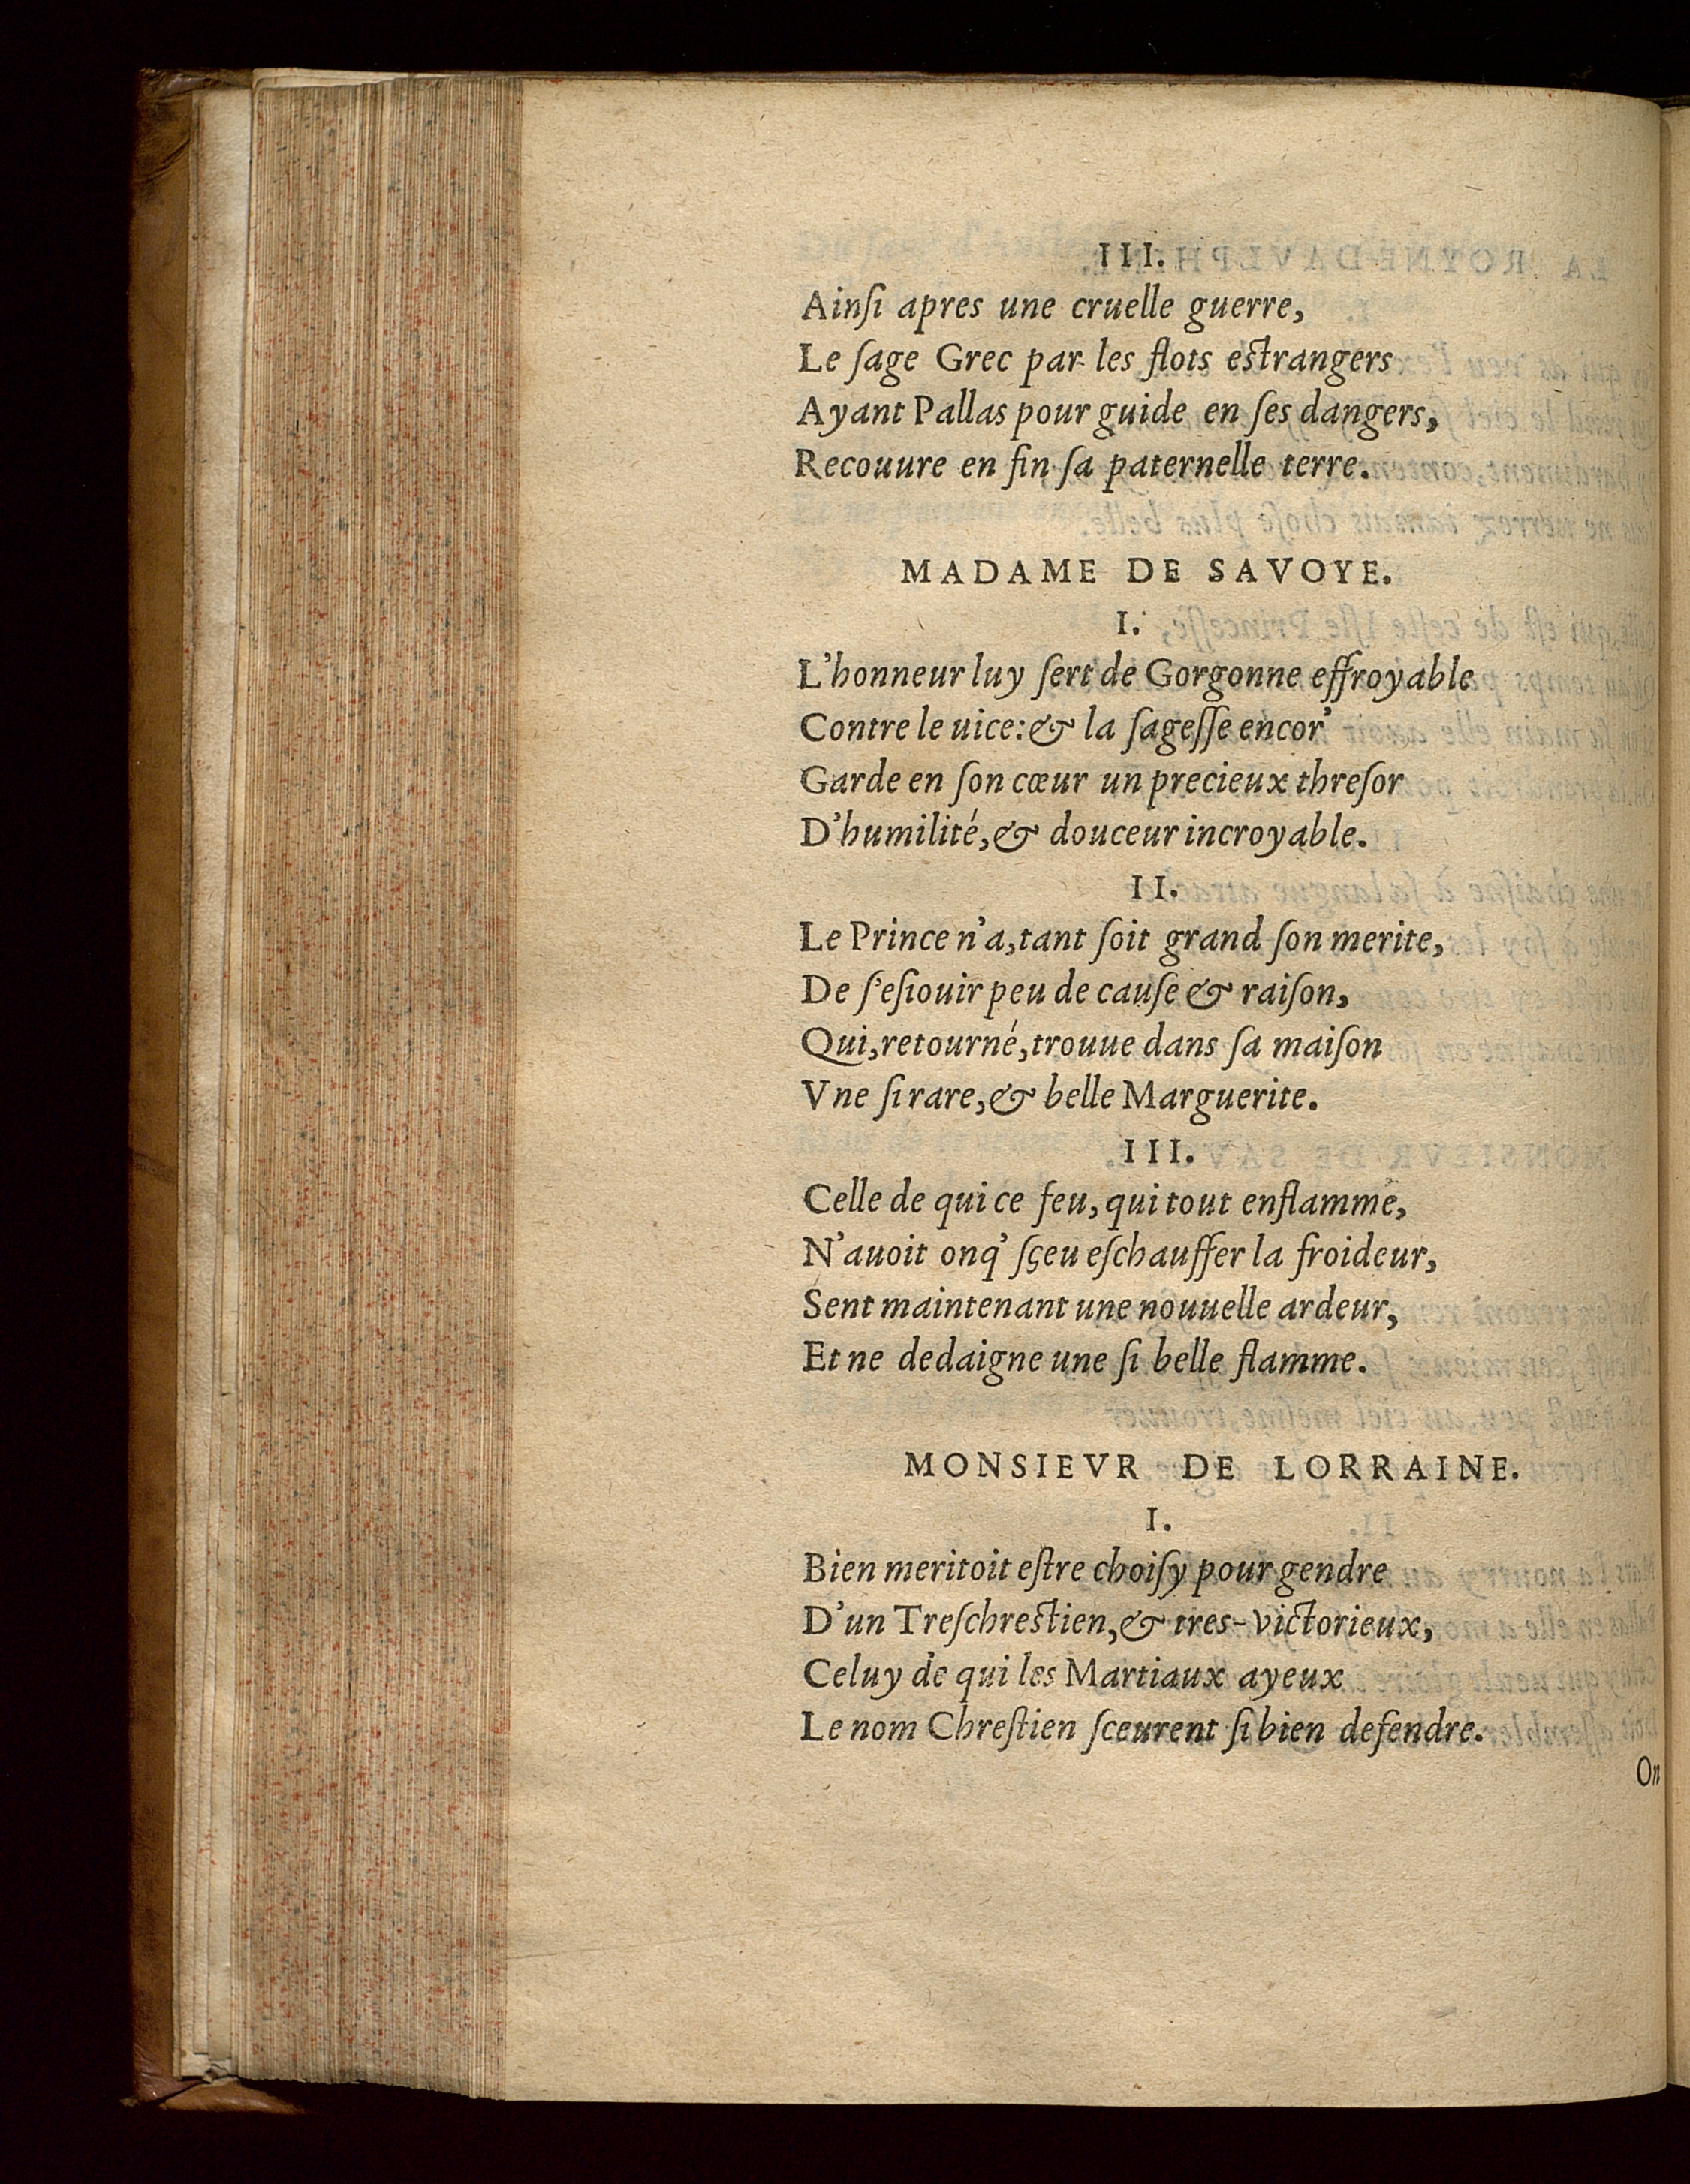 III.
Ainſi apres une cruelle guerre,
Le ſage Grec par les flots estrangers
Ayant Pallas pour guide en ſes dangers,
Recouure en fin ſa paternelle terre.
MADAME DE SAVOYE.
I.
L'honneur luy ſert de Gorgonne effroyable
Contre le uice: & la ſageſſe encor'
Garde en ſon cœur un precieux threſor
D'humilité, & douceur incroyable.
II.
Le Prince n'a, tant ſoit grand ſon merite,
De ſ'eſiouir peu de cauſe & raiſon,
Qui, retourné, trouue dans ſa maiſon
Vne ſi rare, & belle Marguerite.
III.
Celle de qui ce feu, qui tout enflamme,
N'auoit onq' ſçeu eſchauffer la froideur,
Sent maintenant une nouuelle ardeur,
Et ne dedaigne une ſi belle flamme.
MONSIEVR DE LORRAINE.
I.
Bien meritoit eſtre choiſy pour gendre
D'un Treſchrestien, & tres-victorieux,
Celuy de qui les Martiaux ayeux
Le nom Chreſtien ſceurent ſi bien defendre.
On